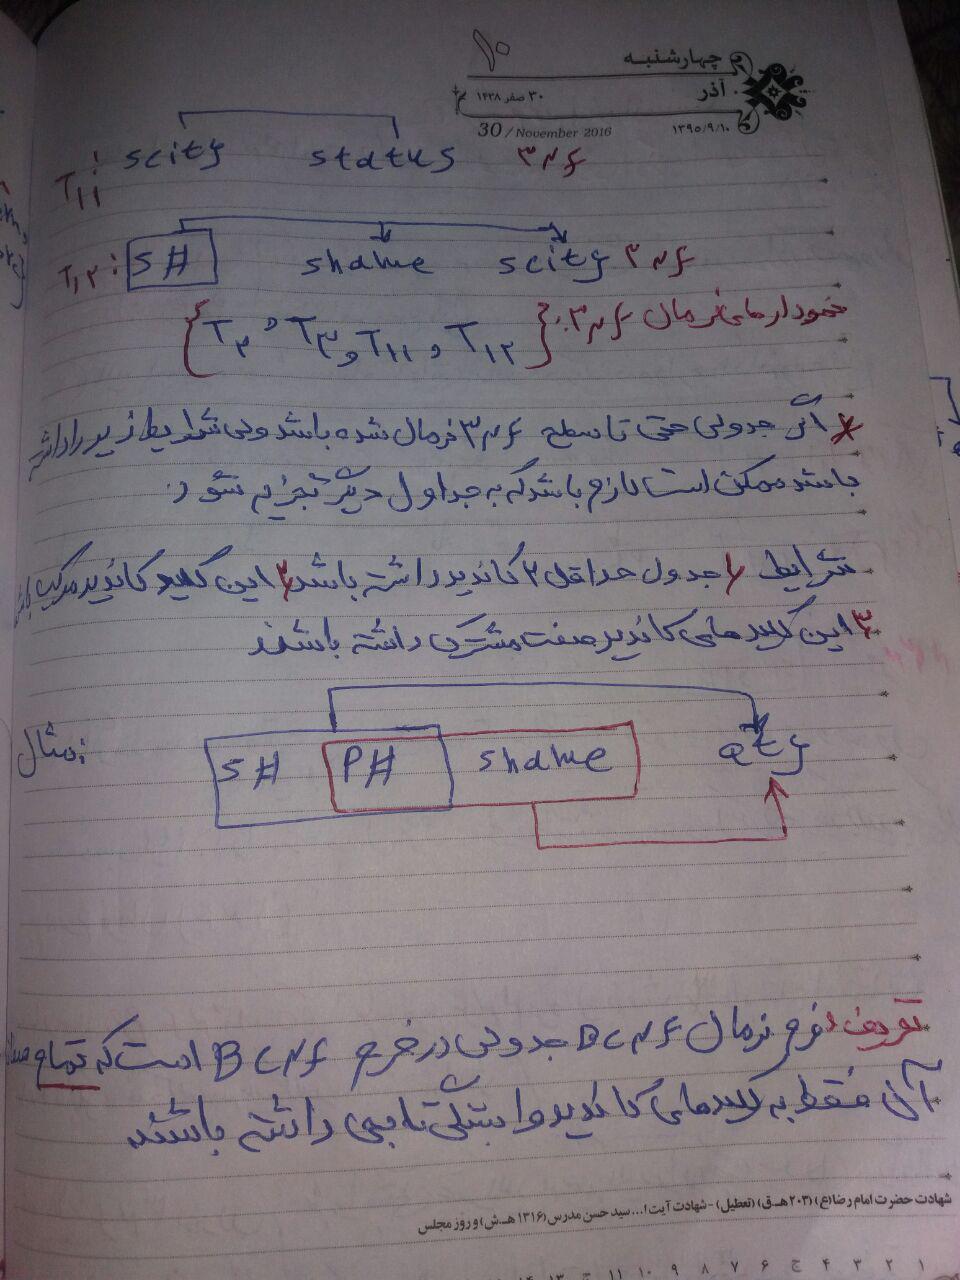 ۱۰
چهارشنبه
آذر
۳۰ صفر ۱۴۳۸
30 / November 2016
۱۳۹۵/۹/۱۰
T۱۱: scity status ۳NF
T۱۲: S# sname scity ۳NF
نمودارهای نرمال ۳NF: {T۲, T۳, T۱۱, T۱۲}
* اگر جدولی حتی تا سطح ۳NF نرمال شده باشد ولی شرایط زیر را داشته
باشد ممکن است لازم باشد که به جداول دیگر تجزیه شود:
شرایط ۱ جدول حداقل ۲ کاندید داشته باشد ۲ این کلید کاندید مرکب باشد
۳ این کلید های کاندید صفت مشترک داشته باشند
مثال:
S# P# sname qty
تعریف: فرم نرمال BCNF جدولی در فرم BCNF است که تمام
آن فقط به کلیدهای کاندید وابستگی تابعی داشته باشند
شهادت حضرت امام رضا(ع) (۲۰۳ هـ.ق) (تعطیل) - شهادت آیت ا... سید حسن مدرس (۱۳۱۶ هـ.ش) و روز مجلس
۱ ۲ ۳ ۴ ج ۶ ۷ ۸ ۹ ۱۰ ۱۱ ج ۱۳